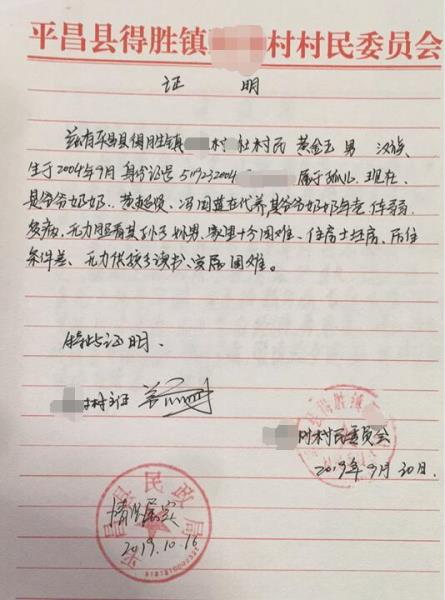 平昌县得胜镇 村村民委员会
证 明
兹有平昌县得胜镇 村 社村民 黄金玉 男 汉族
生于2004年9月 身份证号 5119232004 属于孤儿. 现在.
县爷爷奶奶. 黄超俊、冯国莲在代养,其爷爷奶奶年老 体弱
多病,无力照看其孙子 孙男,家里十分困难、住房土坯房、居住
条件差、无力供孩子读书、实属困难。
特此证明.
村主任
村村民委员会
2019年9月30日.
平昌县民政局
情况属实
2019.10.16